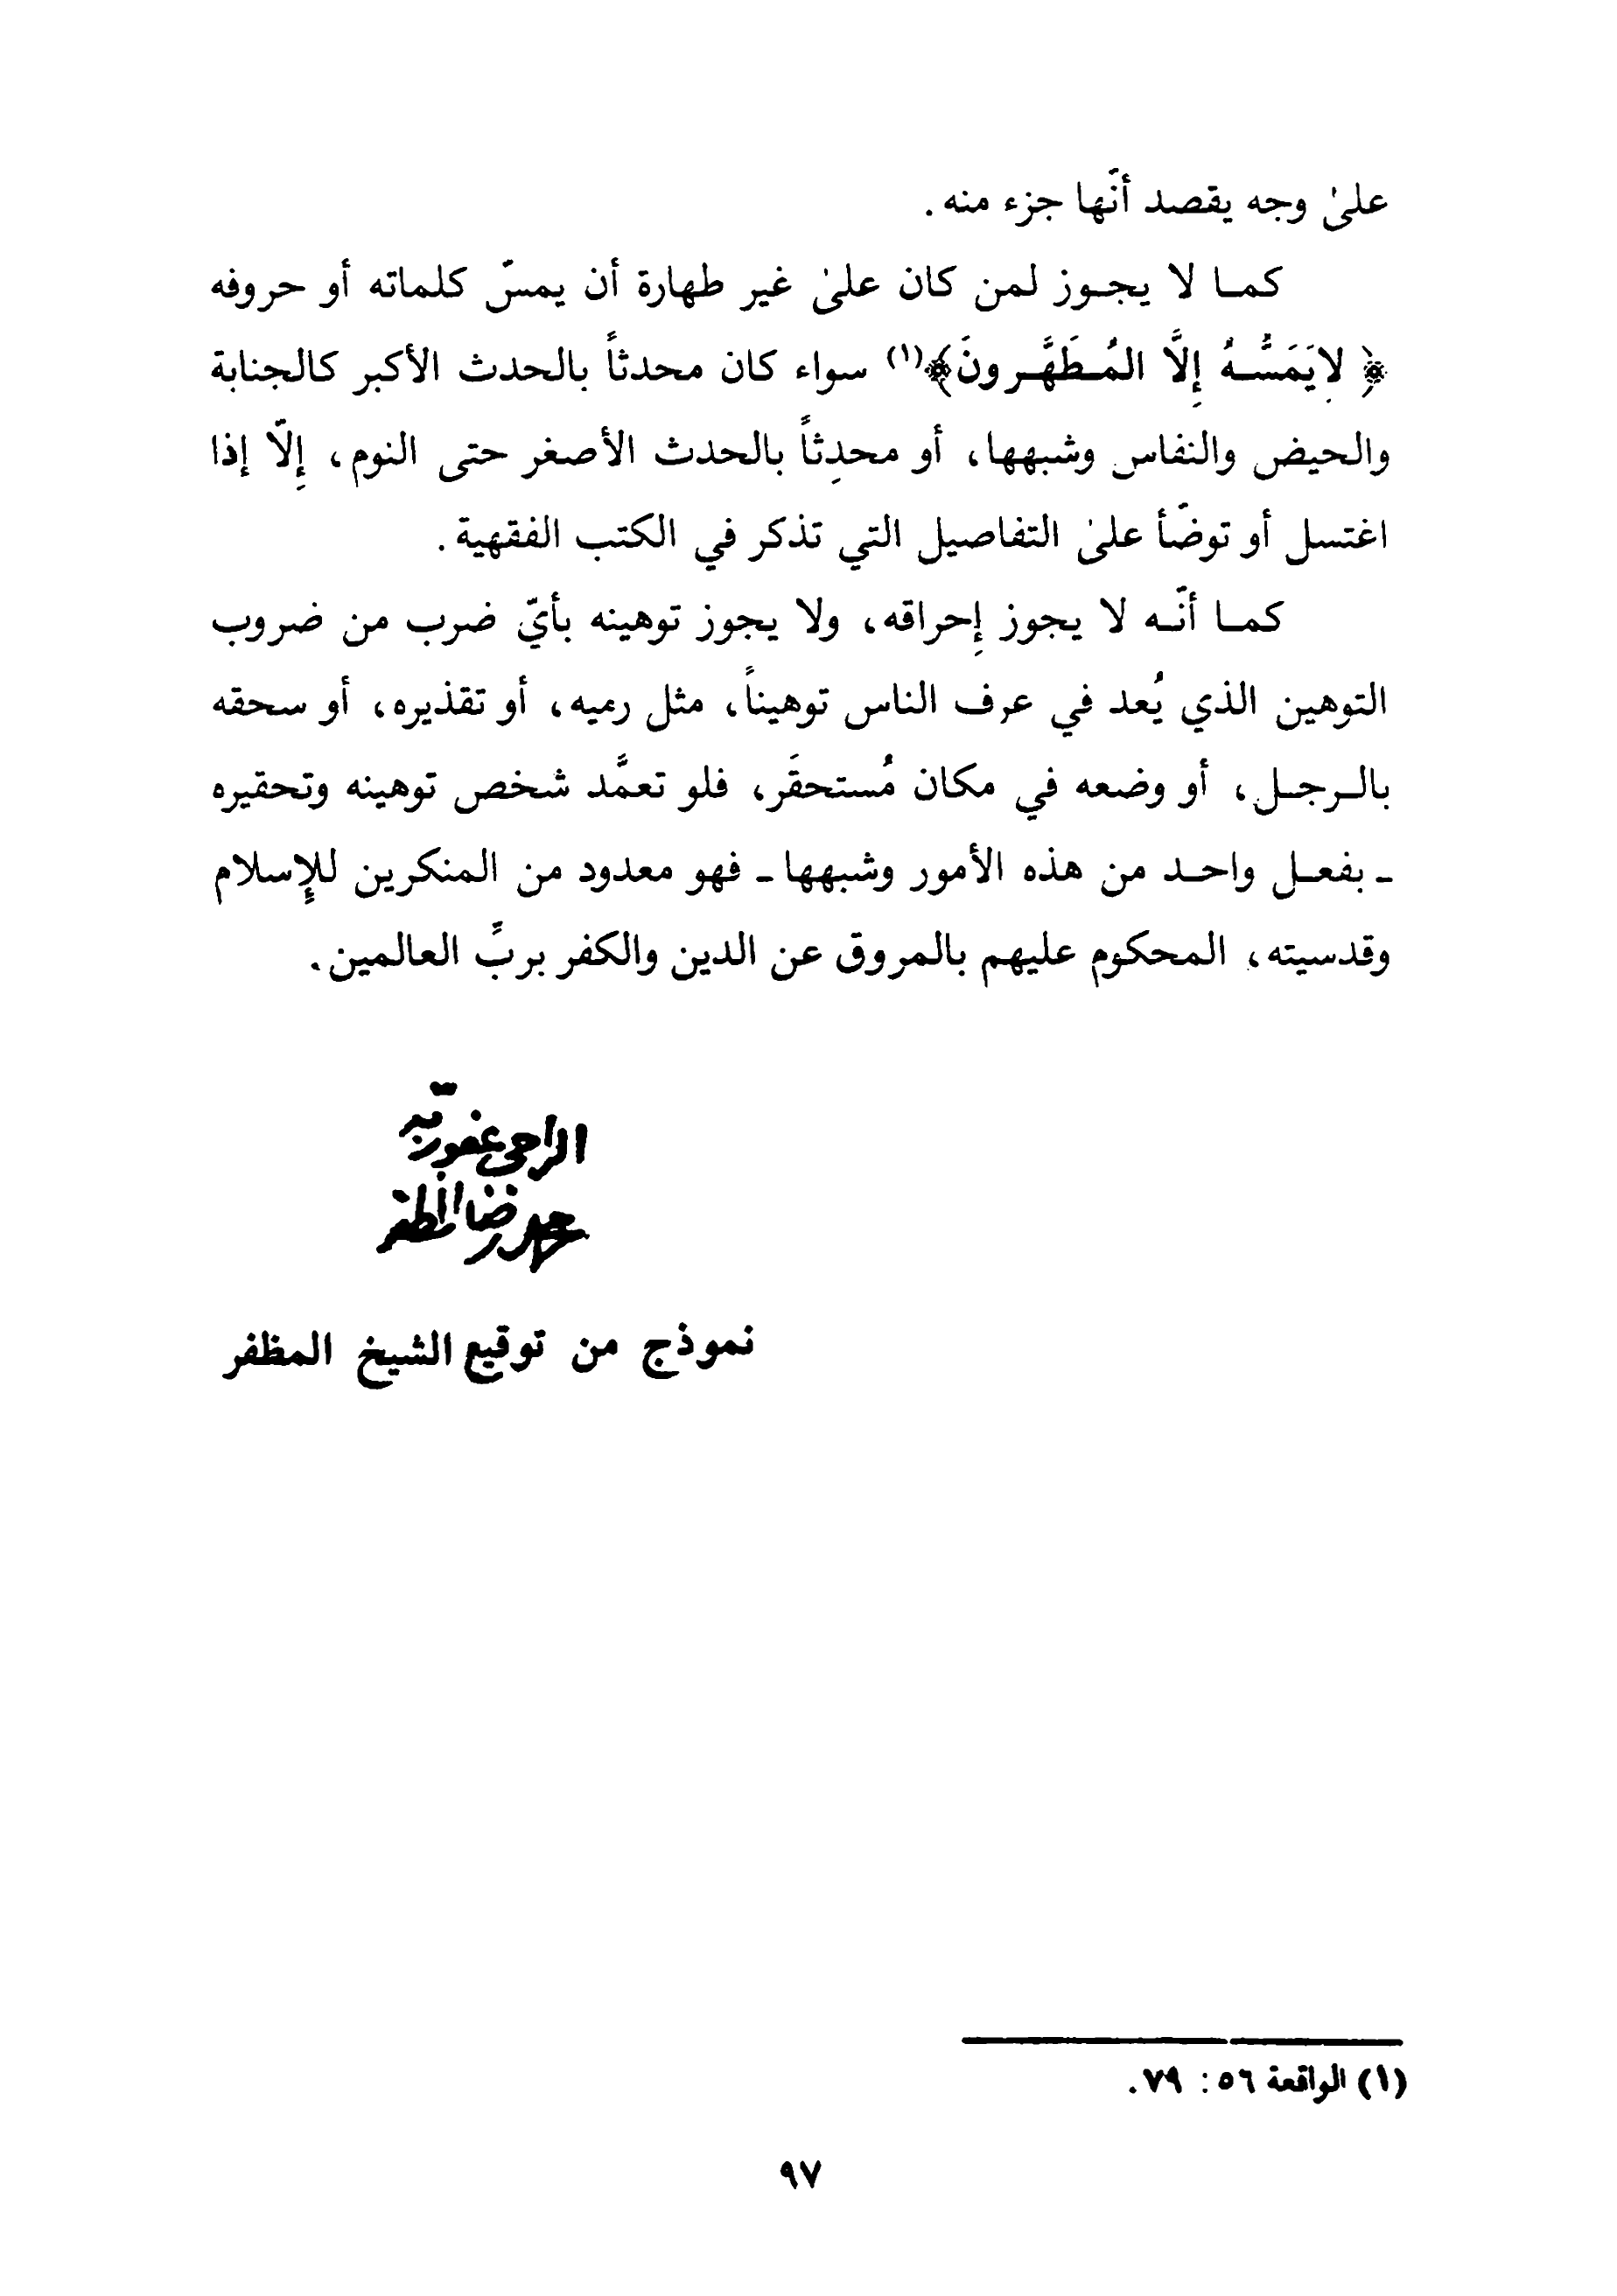 علىٰ وجه يقصد أنّها جزء منه .
كمـا لا يجـوز لمن كان علىٰ غير طهارة أن يمسّ كلماته أو حروفه
﴿ لايَمَسُّـهُ إِلاَّ المُـطَهَّـرونَ﴾(١) سواء كان محدثاً بالحدث الأكبر كالجنابة
والحيض والنفاس وشبهها، أو محدِثاً بالحدث الأصغر حتى النوم، إِلّا إذا
اغتسل أو توضّأ علىٰ التفاصيل التي تذكر في الكتب الفقهية .
كمـا أنّـه لا يجوز إِحراقه، ولا يجوز توهينه بأيّ ضرب من ضروب
التوهين الذي يُعد في عرف الناس توهيناً، مثل رميه، أو تقذيره، أو سحقه
بالـرجـل، أو وضعه في مكان مُستحقَر، فلو تعمَّد شخص توهينه وتحقيره
ـ بفعـل واحـد من هذه الأمور وشبهها ـ فهو معدود من المنكرين للإِسلام
وقدسيته، المحكوم عليهم بالمروق عن الدين والكفر بربِّ العالمين.
الراجي عفو ربّه
محمد رضا المظفر
نموذج من توقيع الشيخ المظفر
(١) الواقعة ٥٦: ٧٩.
٩٧